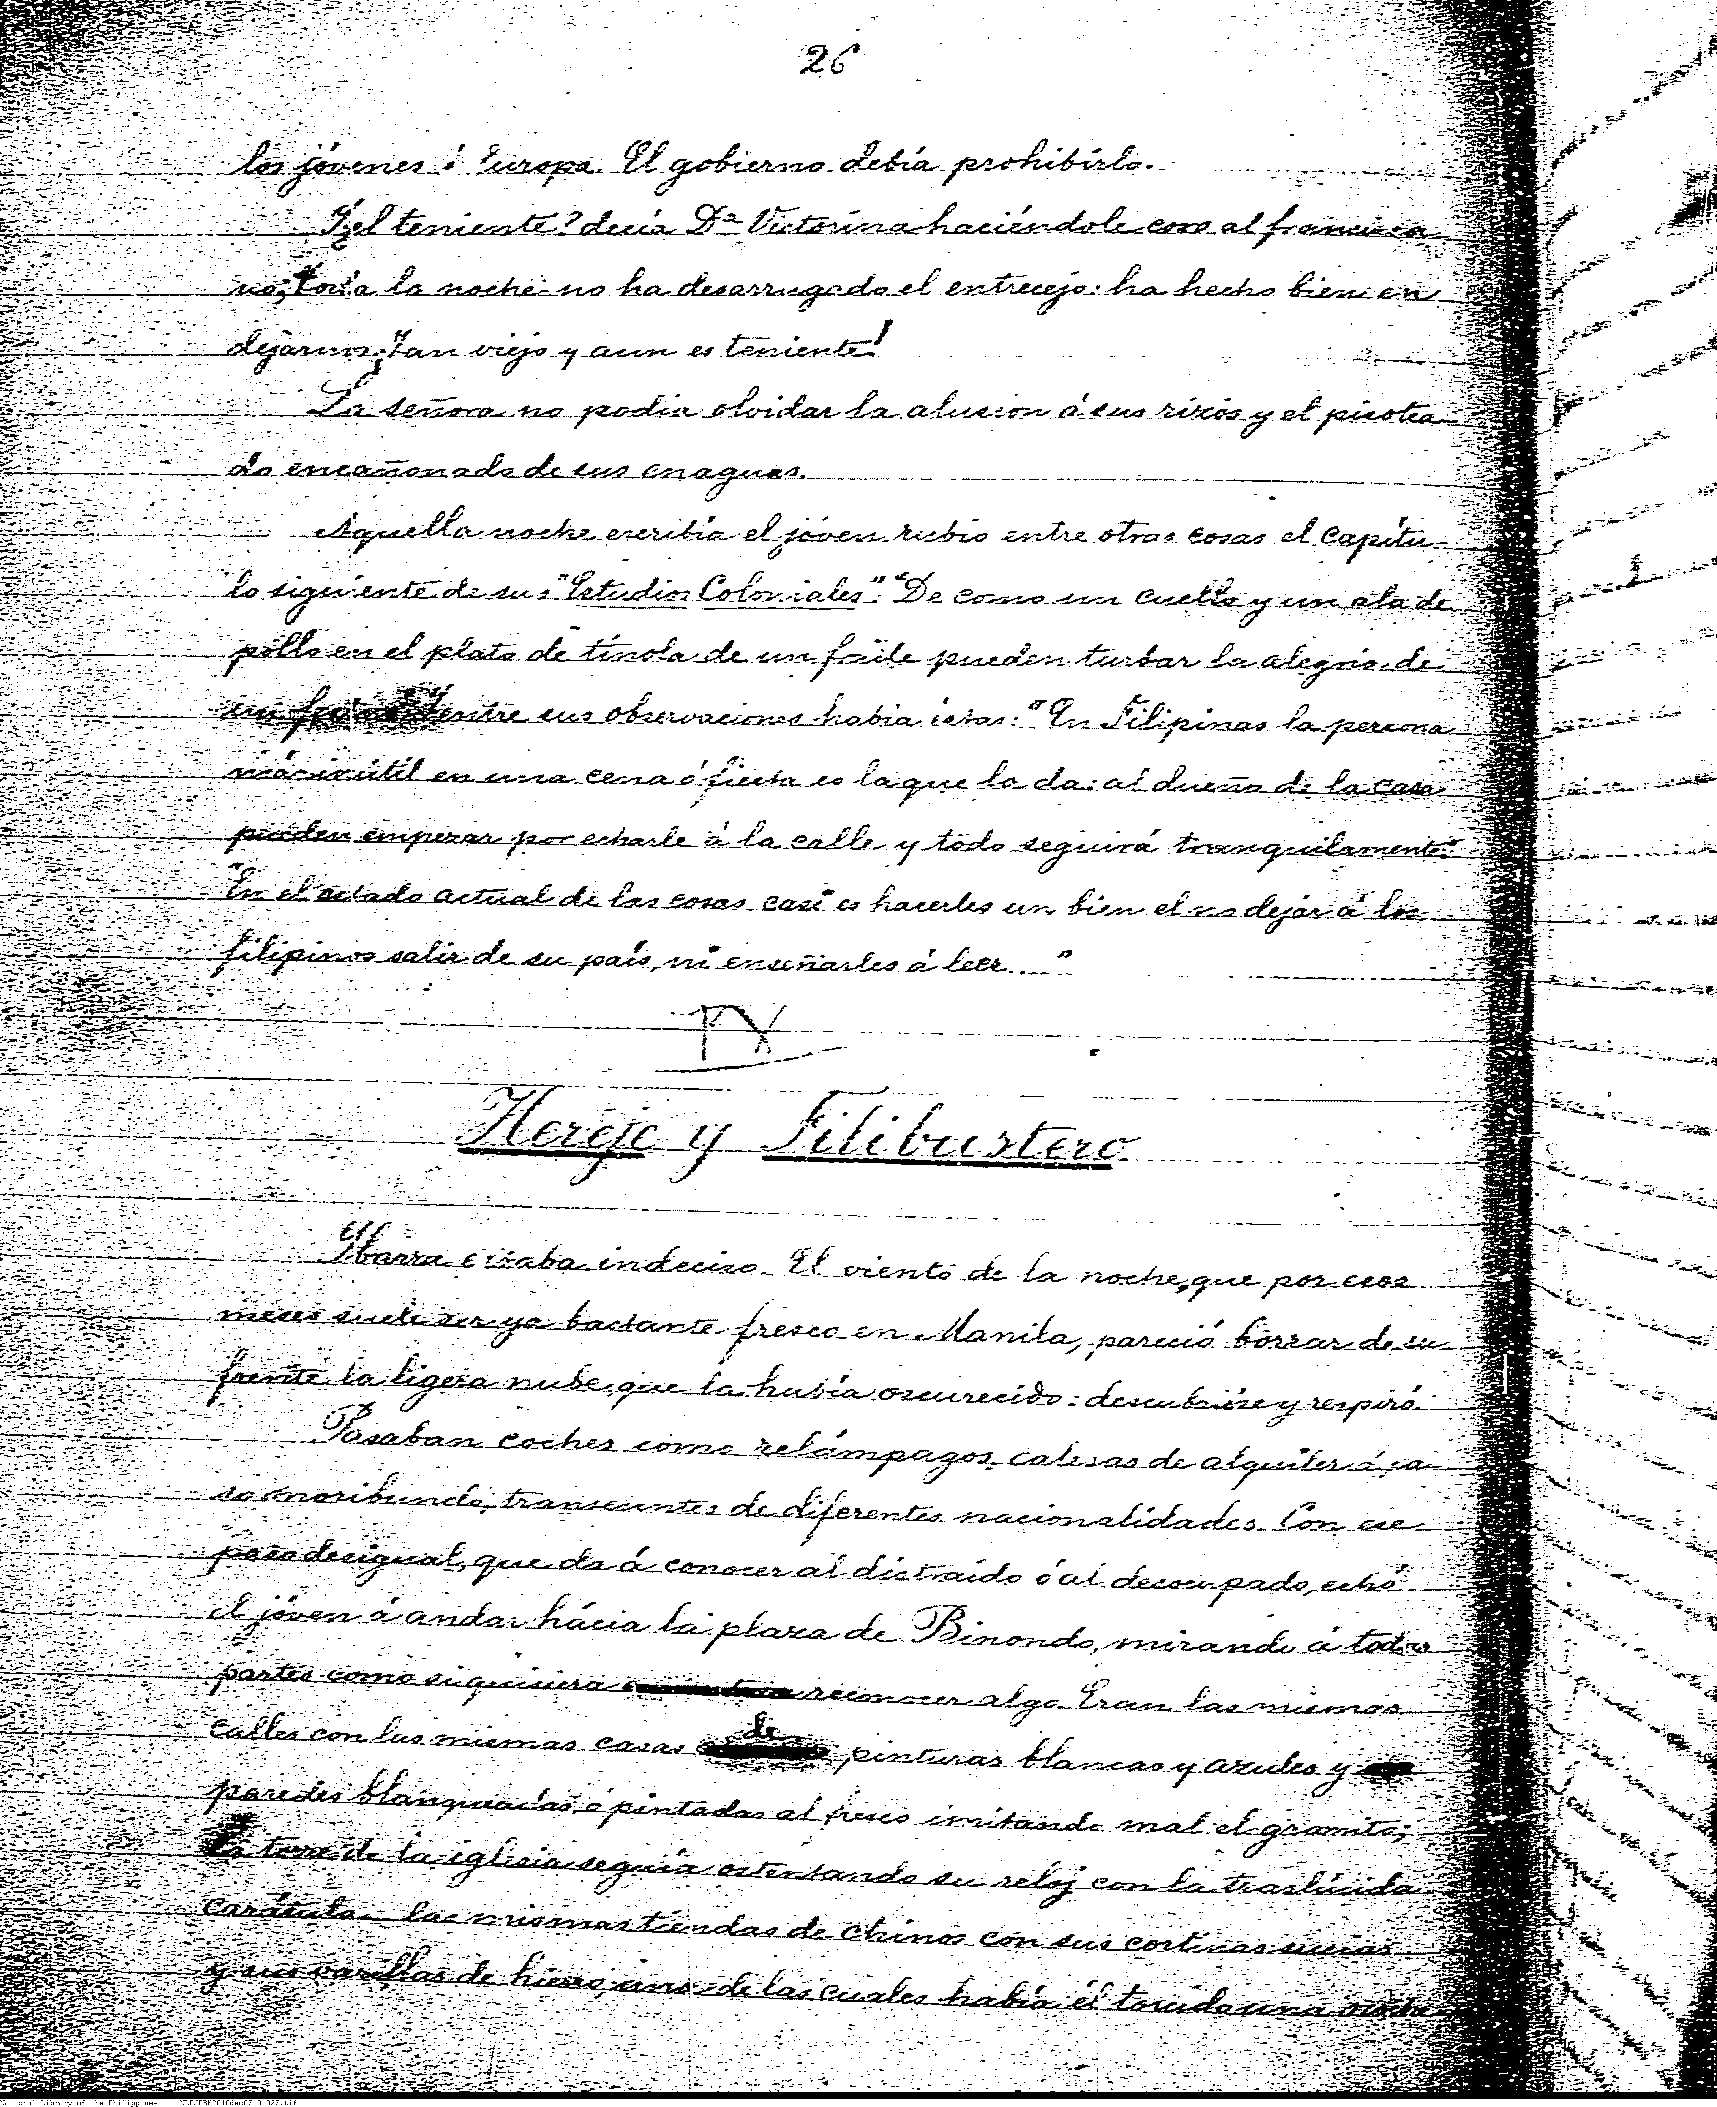 26
los jóvenes á Europa. El gobierno debía prohibirlo.
Y el teniente? decía Dª Victorina haciéndole coro al francisca
no, toda la noche no ha desarrugado el entrecejo: ha hecho bien en
dejarnos ¡Tan viejo y aun es teniente!
La señora no podia olvidar la alusion á sus rizos y el pisotea
do encañonado de sus enaguas.
Aquella noche escribía el jóven rubio entre otras cosas el capítu
lo siguiente de sus "Estudios Coloniales": "De como un cuello y un ala de
pollo en el plato de tinola de un fraile pueden turbar la alegria de
un entre sus observaciones había éstas: "En Filipinas la persona
más inútil en una cena ó fiesta es la que la da: al dueño de la casa
pueden empezar por echarle á la calle y todo seguirá tranquilamente."
"En el estado actual de las cosas casi es hacerles un bien el no dejar á los
filipinos salir de su país, ni enseñarles á leer...."
IV
Hereje y Filibustero
Ibarra estaba indeciso. El viento de la noche, que por esos
meses suele ser ya bastante fresco en Manila, pareció borrar de su
frente la ligera nube que la había oscurecido: descubrióse y respiró.
Pasaban coches como relámpagos, calesas de alquiler á pa
so moribundo, transeuntes de diferentes nacionalidades. Con ese
paso desigual, que da á conocer al distraido ó al desocupado, echó
el jóven á andar hácia la plaza de Binondo, mirando á todas
partes como si quisiera reconocer algo. Eran las mismas
calles con las mismas casas de pinturas blancas y azules y
paredes blanqueadas ó pintadas al fresco imitando mal el granito;
La torre de la iglesia seguía ostentando su reloj con la traslúcida
carátula las mismas tiendas de chinos con sus cortinas sucias
y sus varillas de hierro, una de las cuales había él torcido una noche